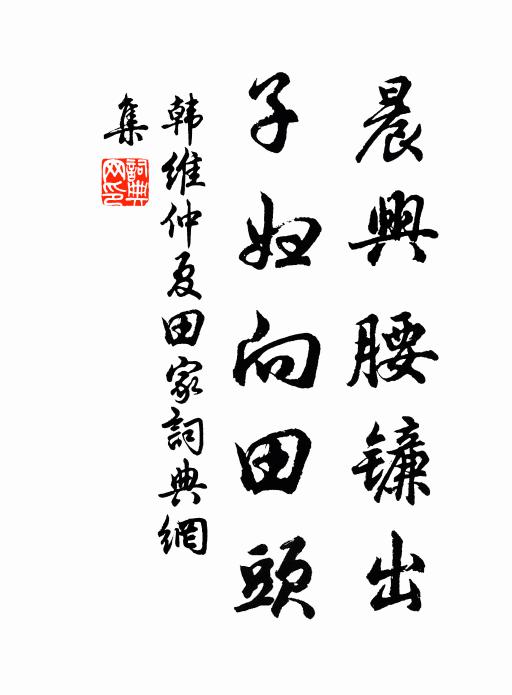 晨興腰镰出
子妇向田頭
韩维仲夏田家詞典網
集
詞典網印